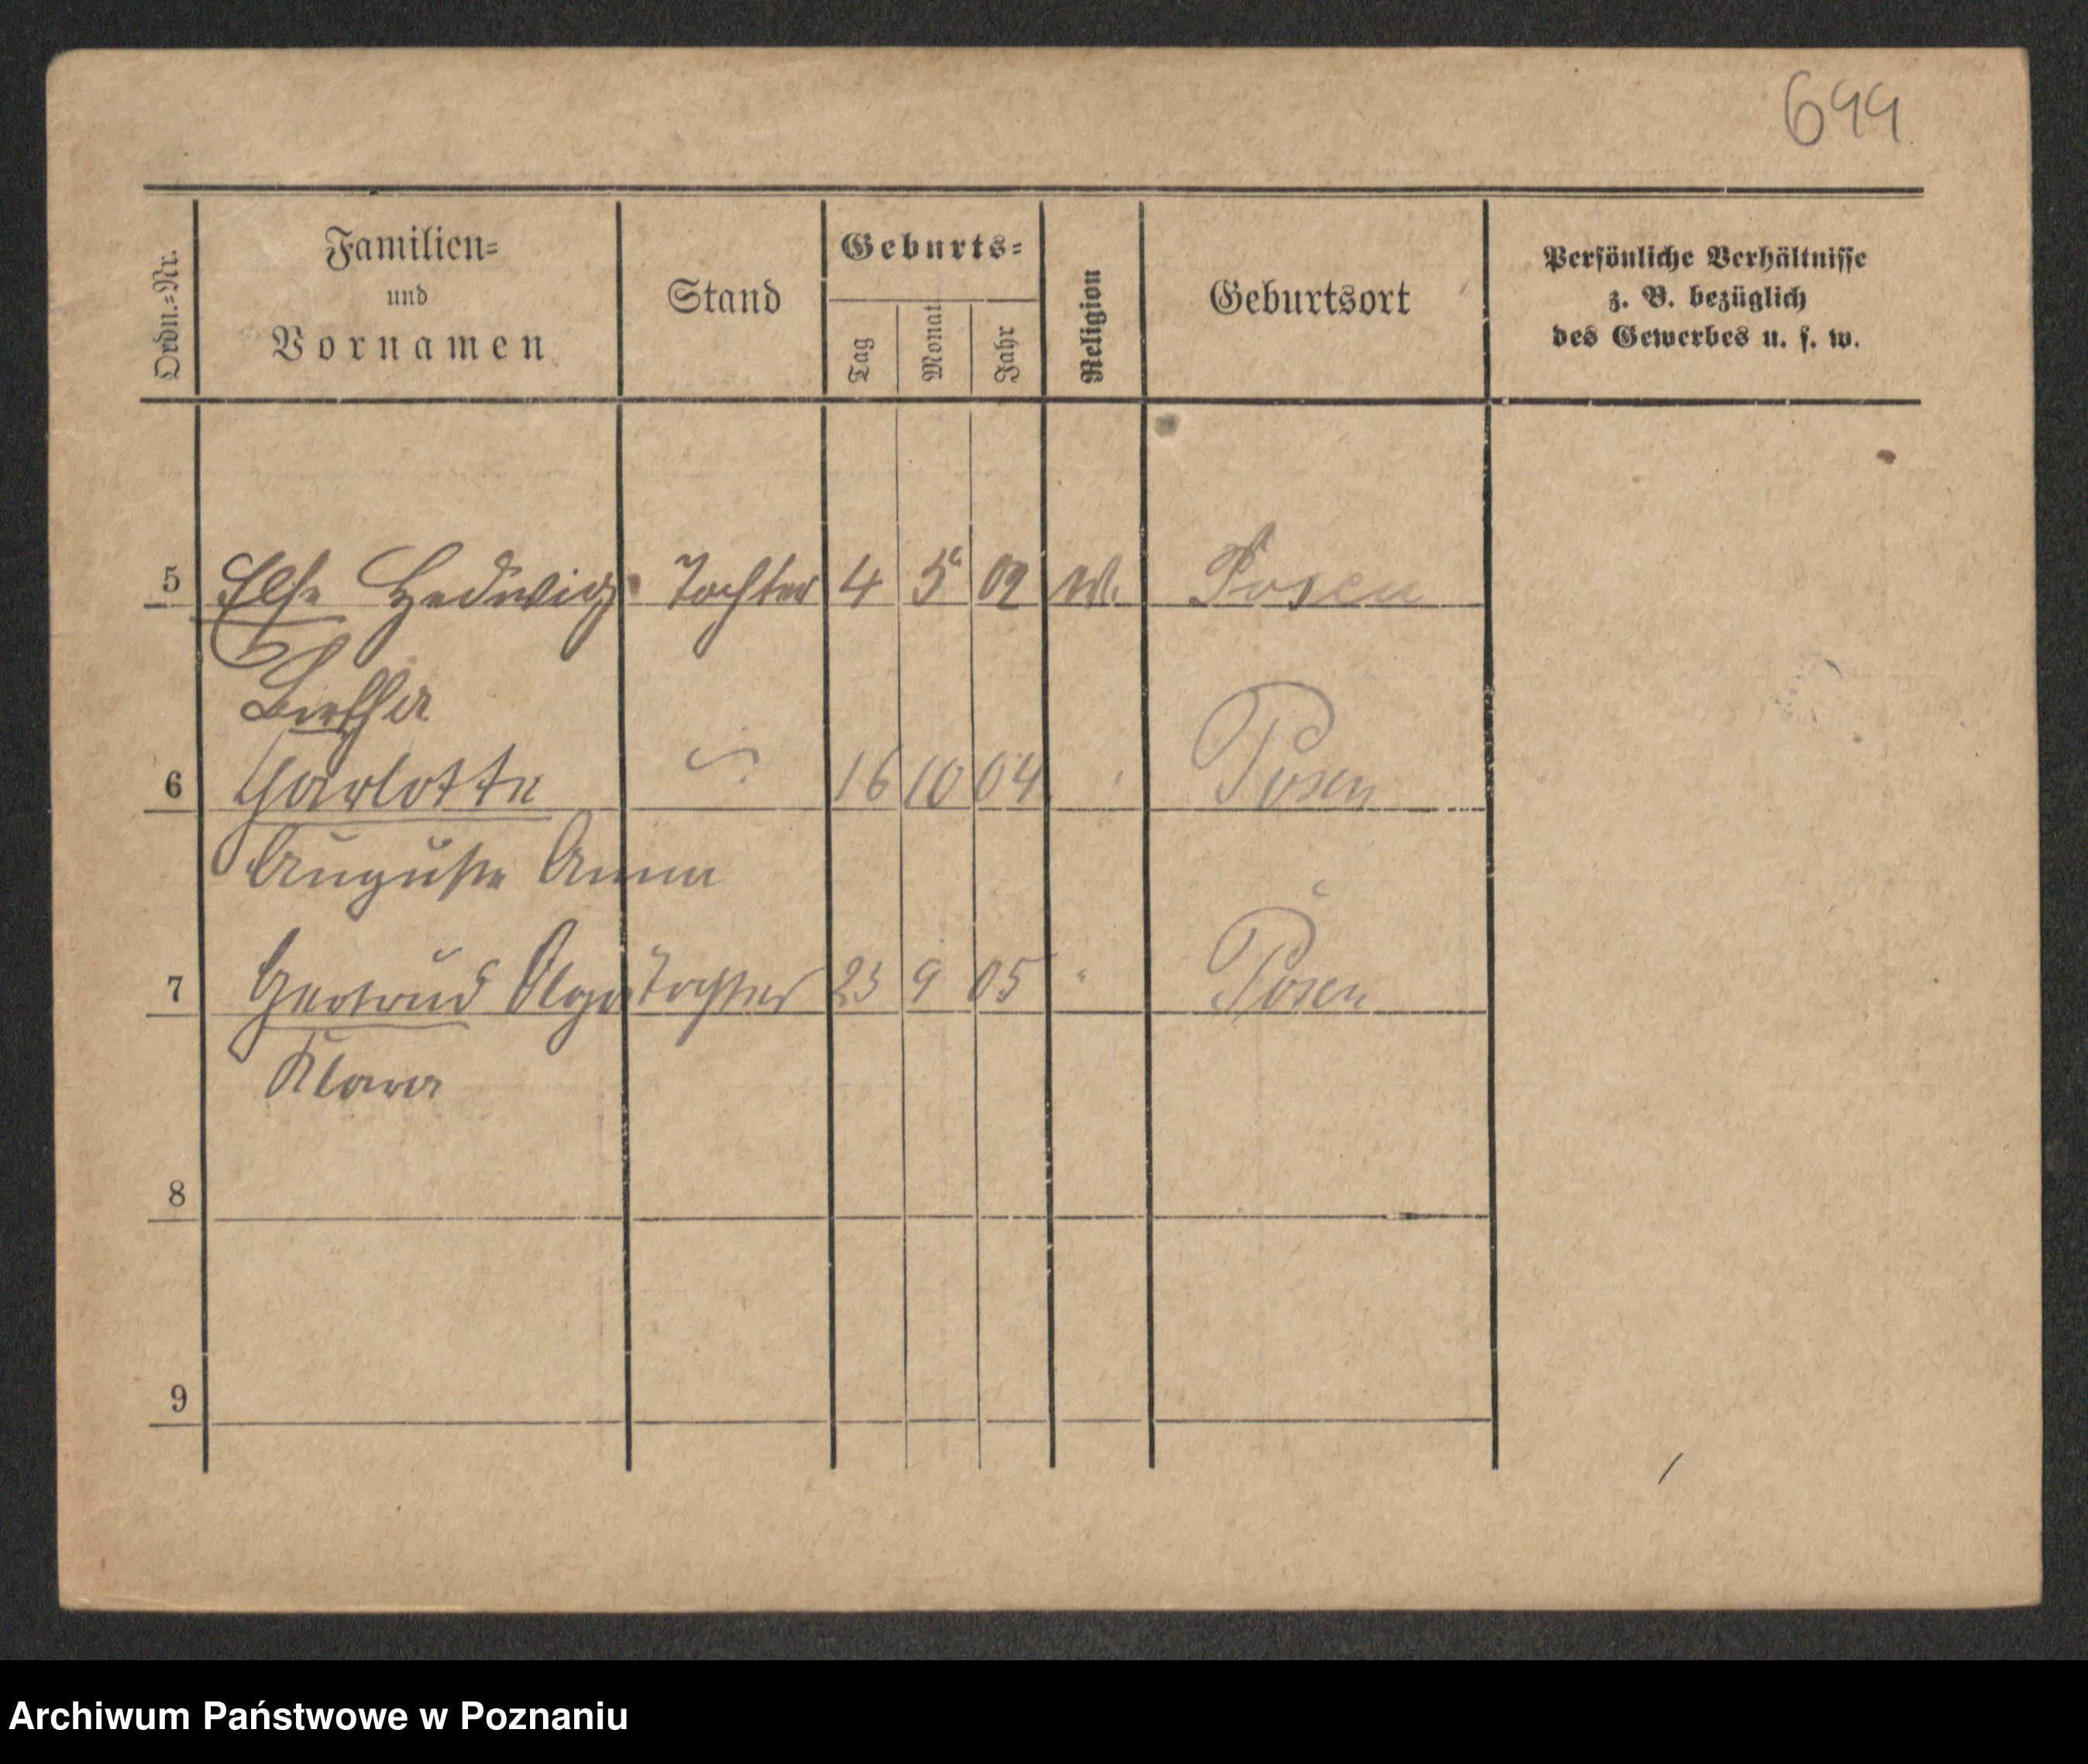 699
Ordn.=Nr.
Familien=
und
Vornamen
Stand
Geburts=
Tag
Monat
Jahr
Religion
Geburtsort
Persönliche Verhältnisse
z. B. bezüglich
des Gewerbes u. s. w.
5 Else Hedwig Tochter 4 5 02 Posen
Bertha
6 Charlotte 16 10 04 Posen
Auguste Anna
7 Gertrud Olga Tochter 23 9 05 " Posen
Klara
8
9
Archiwum Państwowe w Poznaniu